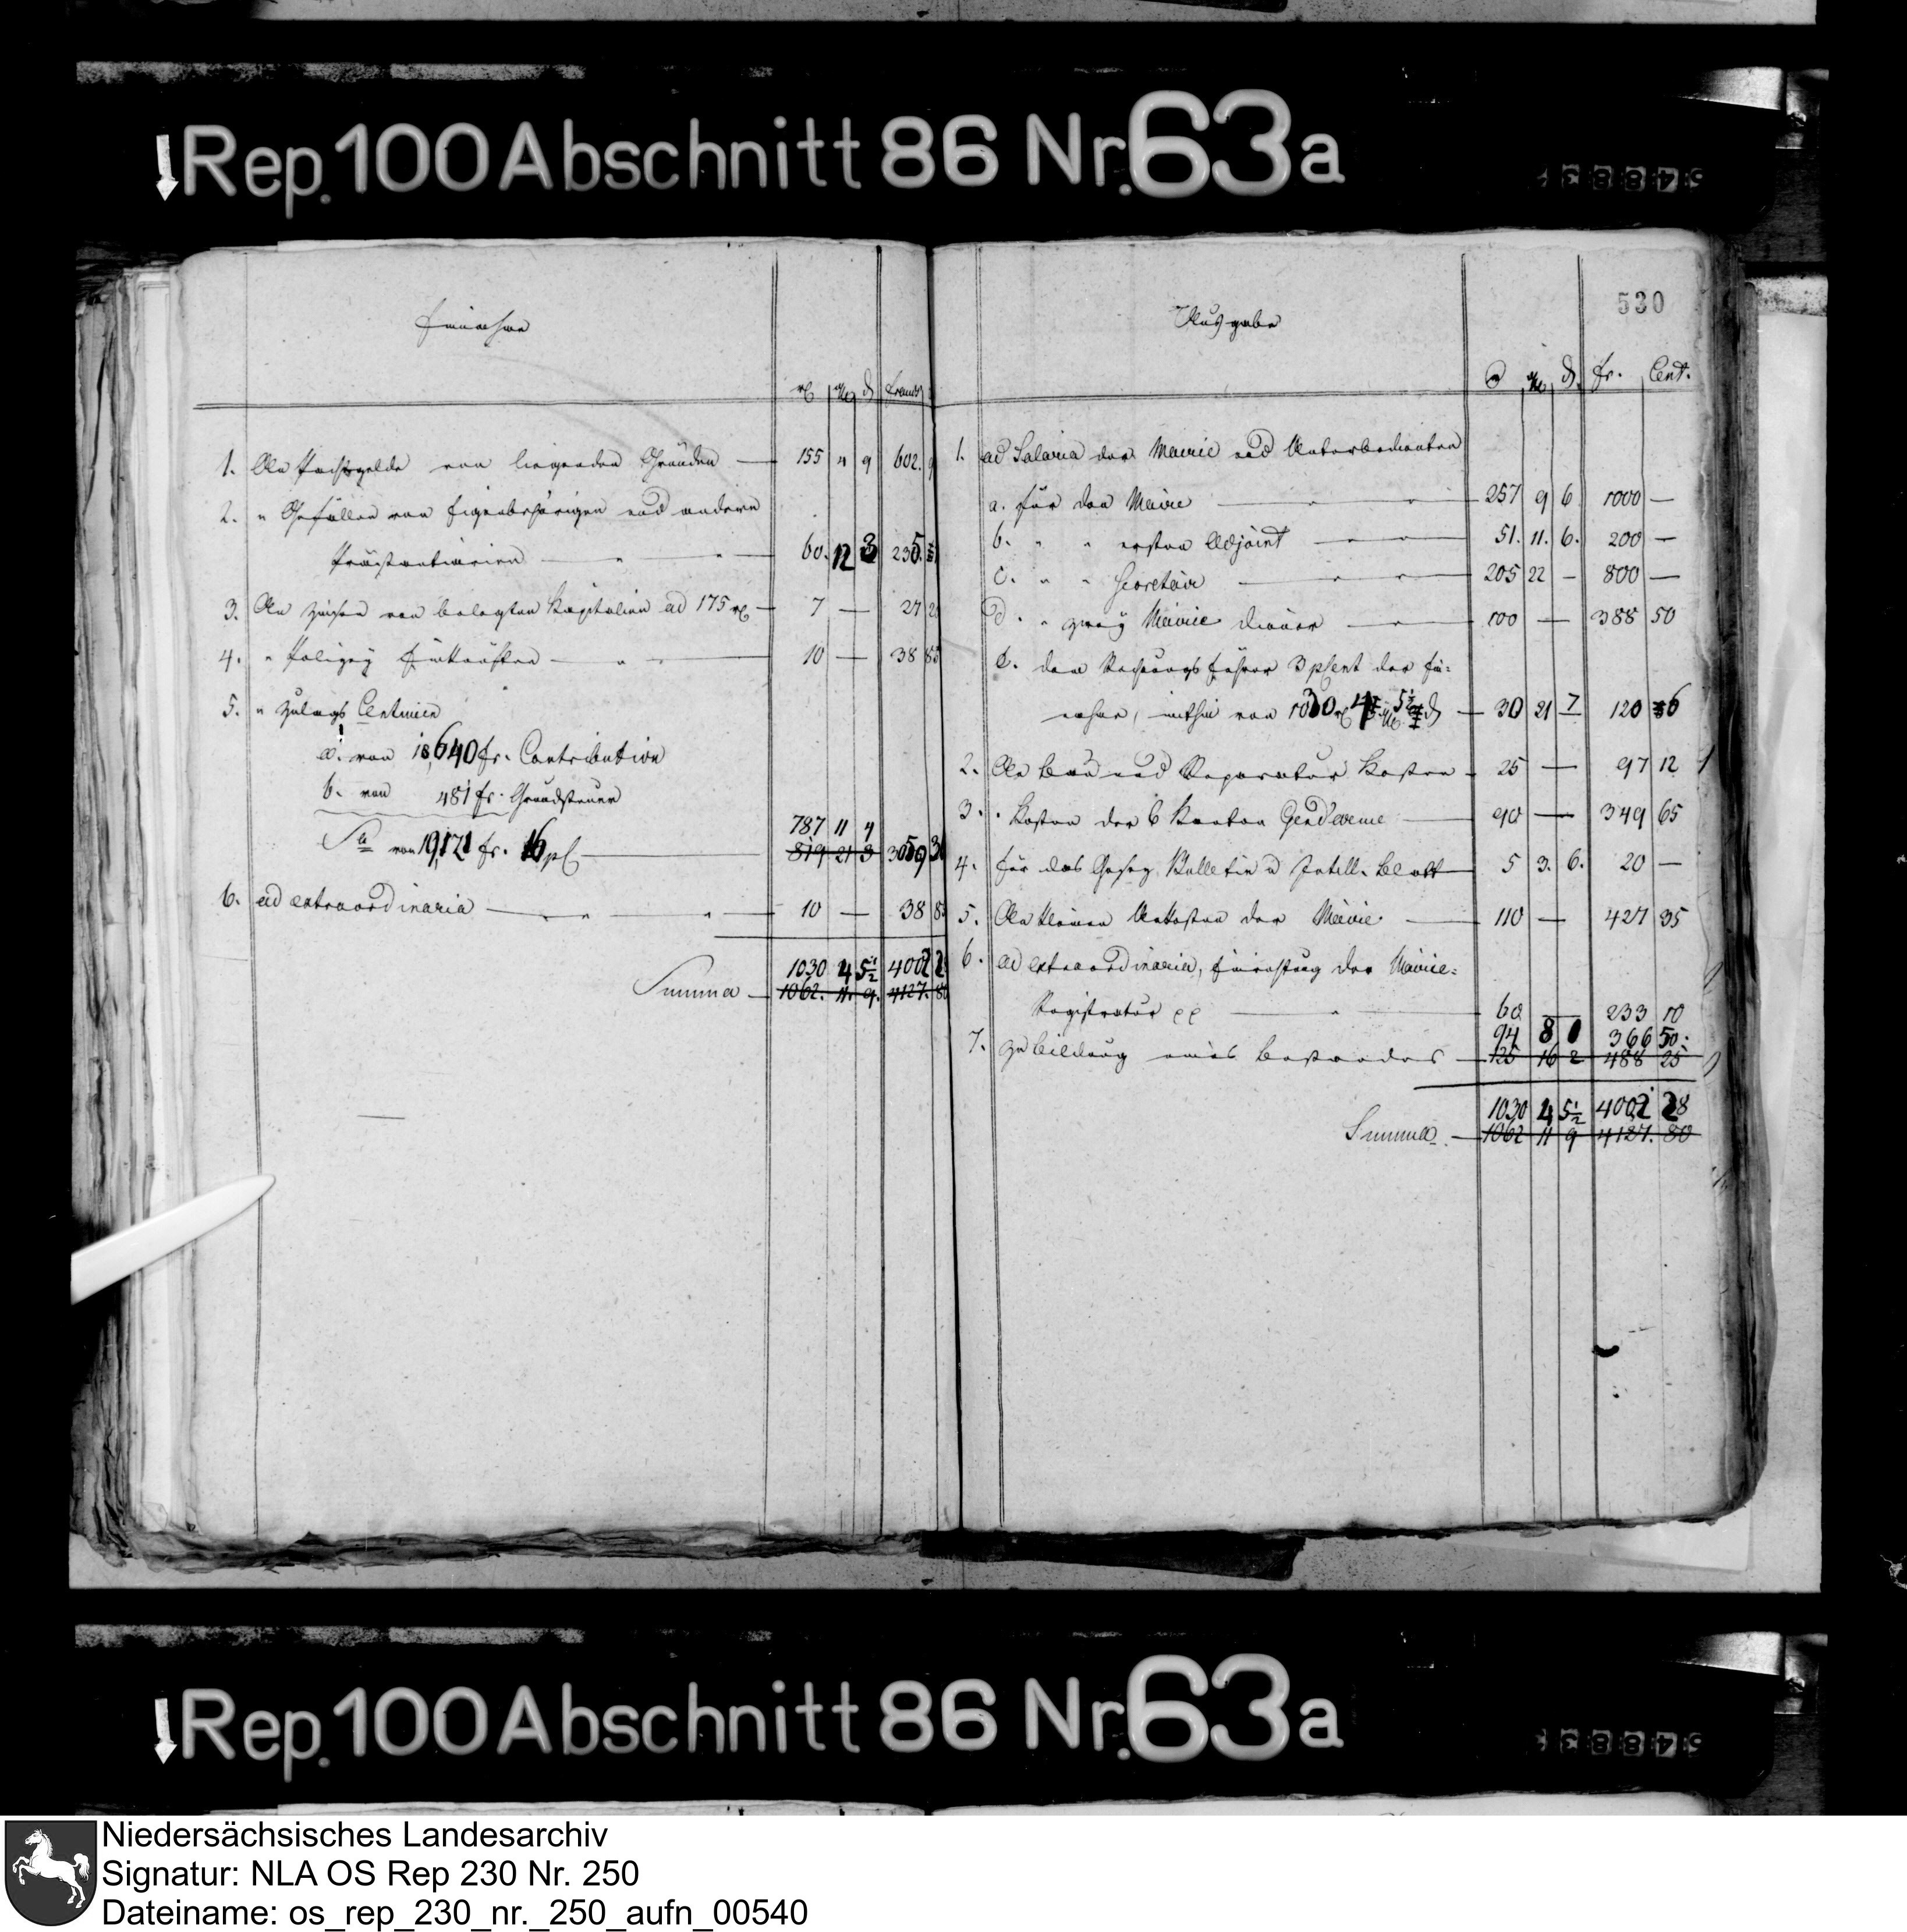 Rep. 100 Abschnitt 86 Nr. 63a
Einnahme
rℓ ggr ₰ Francs
1. An Pachtgelde von liegenden Gründen — 155 4 9 602.
2. " Gefällen von Eigenbehörigen und andern
Prästantiarien — " " — 60. 12 3 235.
3. An Zinsen von belegten Kapitalien ad 175 rℓ — 7 — 27 20
4. " Polizey Einkünften — " " — 10 — 38 85
5. " Zulags Centimen
a. von 18,640 fr. Contribution
b. von 481 fr. Grundsteuer
787 11 4
Sa von 19,121 fr. 16 pC — 819 21 3 3059 3
6. ad extraordinaria — " " — 10 — 38 8
1030 4 5½ 4002 2
Summa — 1062. 11. 9. 4127. 80
530
Ausgabe
rℓ ggr ₰ fr. Cent.
1. ad Salaria der Mairie und Unterbedienten
a. für den Maire — " " — 257 9 6 1000 —
b. " " ersten Adjoint — " — 51. 11. 6. 200 —
c. " " Secretair — " " — 205 22 — 800 —
d. " zwey Mairie Diener — " — 100 — 388 50
e. dem Rechnungsführer 3 pCent der Ein-
nahme, mithin von 1030 rℓ 4 ggr 5½ ₰ — 30 21 7 120 6
2. An Bau und Reparatur Kosten — 25 — 97 12
3. " Kosten der Kanton Gend'arme — 90 — 349 65
4. für das Gesez Bulletin u Intell. Blatt — 5 3. 6. 20 —
5. An kleinen Unkosten der Mairie — 110 — 427 35
6. ad extraordinaria, Einrichtung der Mairie-
Registratur pp — " — 60 — 233 10
94 8 1 366 50.
7. zu Bildung eines Bestandes — 126 16 2 488 25
1030 4 5½ 4002 28
Summa — 1062 11 9 4127. 80
Rep. 100 Abschnitt 86 Nr. 63a
Niedersächsisches Landesarchiv
Signatur: NLA OS Rep 230 Nr. 250
Dateiname: os_rep_230_nr._250_aufn_00540